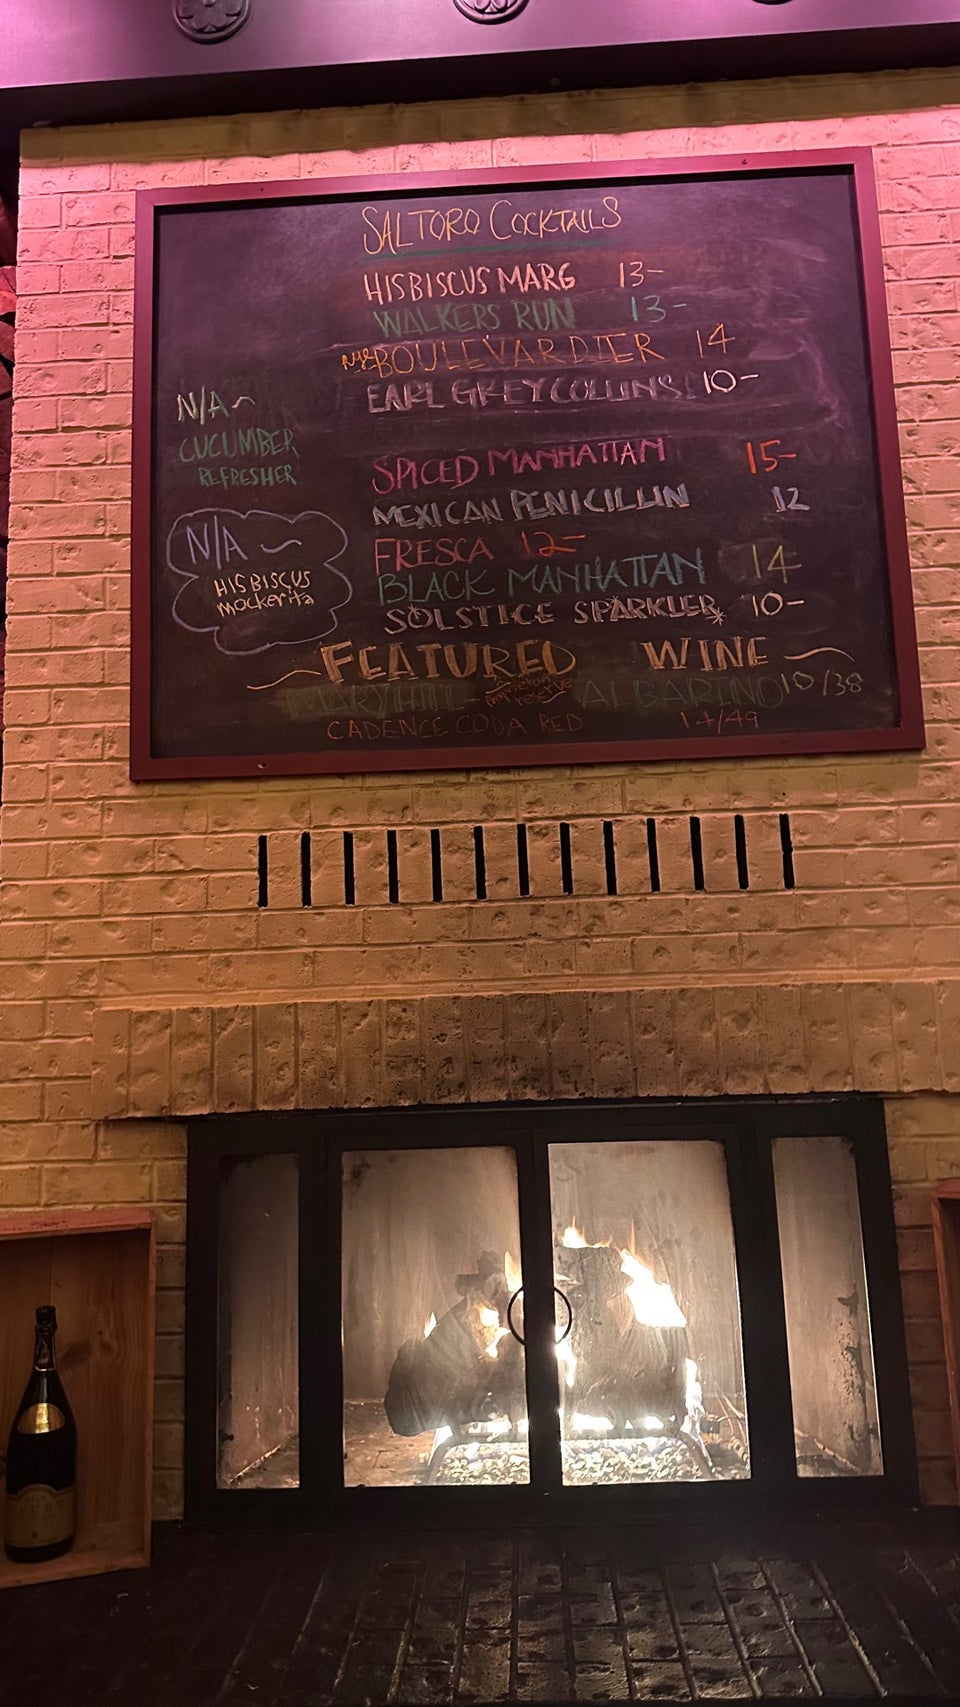 SALTORO COCKTAILS
HISBISCUS MARG 13-
WALKERS RUN 13-
rye BOULEVARDIER 14
EARL GREY COLLINS 10-
N/A ~
CUCUMBER
REFRESHER
SPICED MANHATTAN 15-
MEXICAN PENICILLIN 12
N/A ~
HISBISCUS
mockerita
FRESCA 12-
BLACK MANHATTAN 14
SOLSTICE SPARKLER 10-
~ FEATURED WINE ~
MARYHILL - Proprietors reserve ALBARINO 10/38
CADENCE CODA RED 14/49